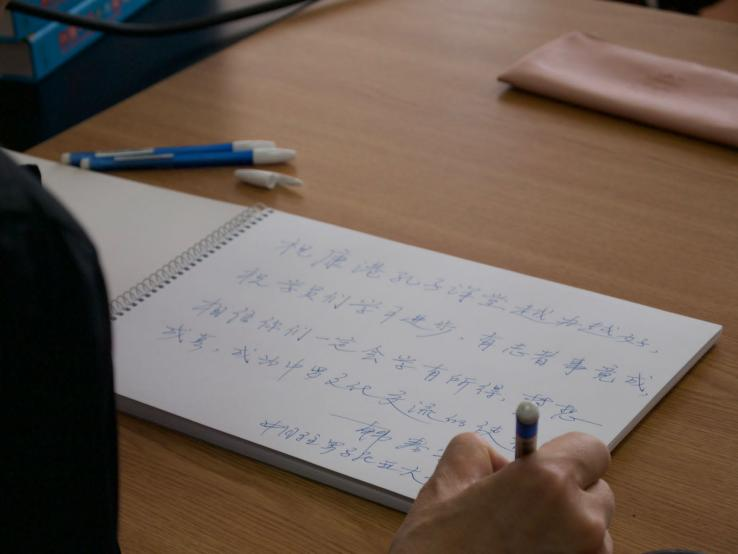 祝康港孔子课堂越办越好,
祝学员们学习进步,有志者事竟成,
相信你们一定会学有所得,梦想
成真,成为中罗文化交流的使
中国驻罗